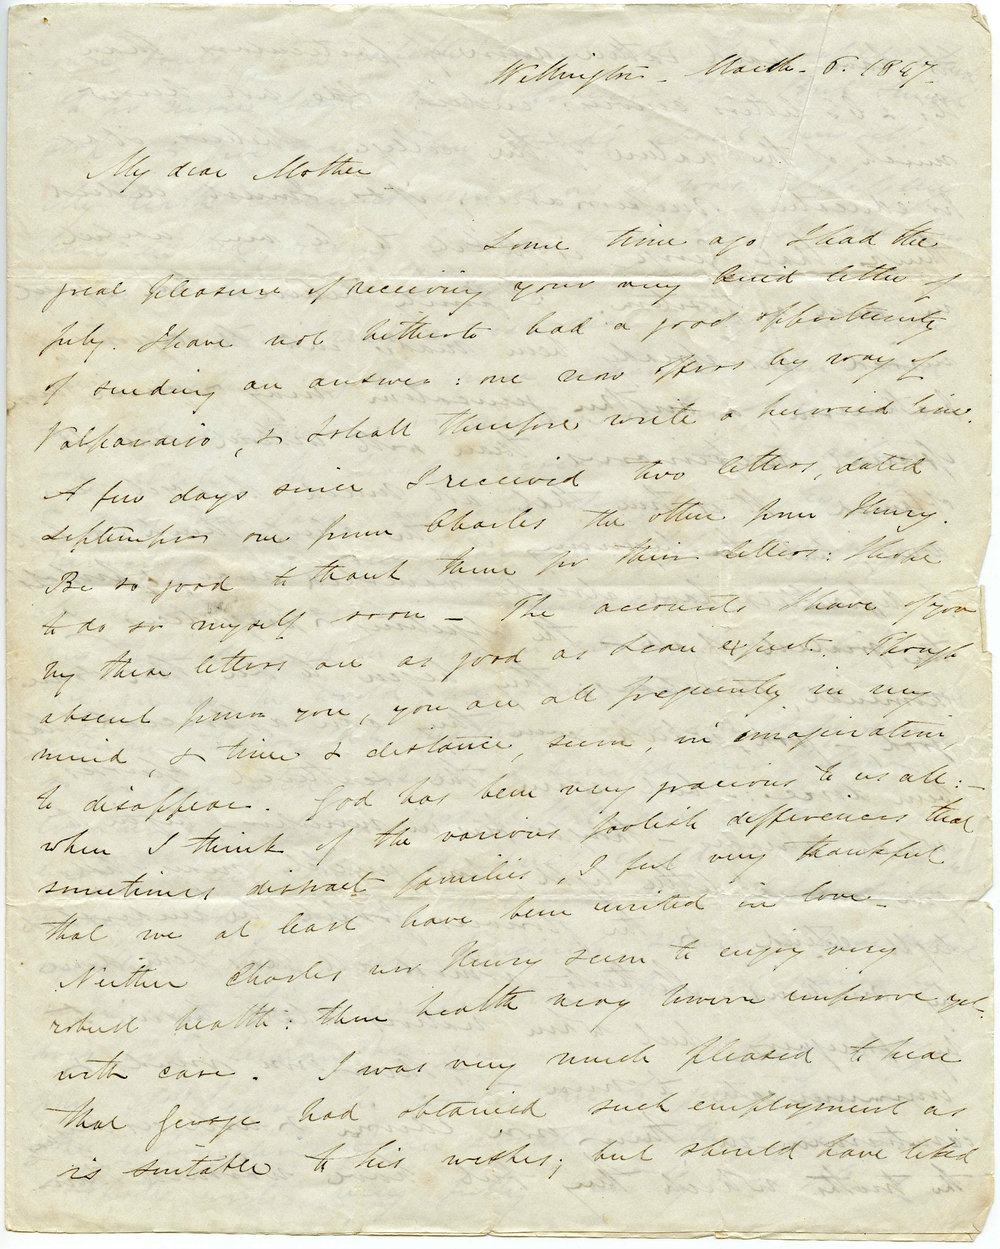 Wellington - March - 6. 1847.
My dear Mother
Some time ago I had the
great pleasure of receiving your very kind letter of
July. I have not hitherto had a good opportunity
of sending an answer: one now offers by way of
Valparaiso, & I shall therefore write a hurried line.
A few days since I received two letters, dated
September one from Charles the other from Henry.
Be so good to thank them for their letters: I hope
to do so myself soon - The accounts I have of you
by these letters are as good as I can expect. Though
absent from you, you are all frequently in my
mind, & time & distance, seem, in imagination,
to disappear. God has been very gracious to us all: -
when I think of the various foolish differences that
sometimes distract families, I feel very thankful
that we at least have been united in love -
Neither Charles nor Henry seem to enjoy very
robust health: their health may however improve yet
with care. I was very much pleased to hear
that George had obtained such employment as
is suitable to his wishes; but should have liked